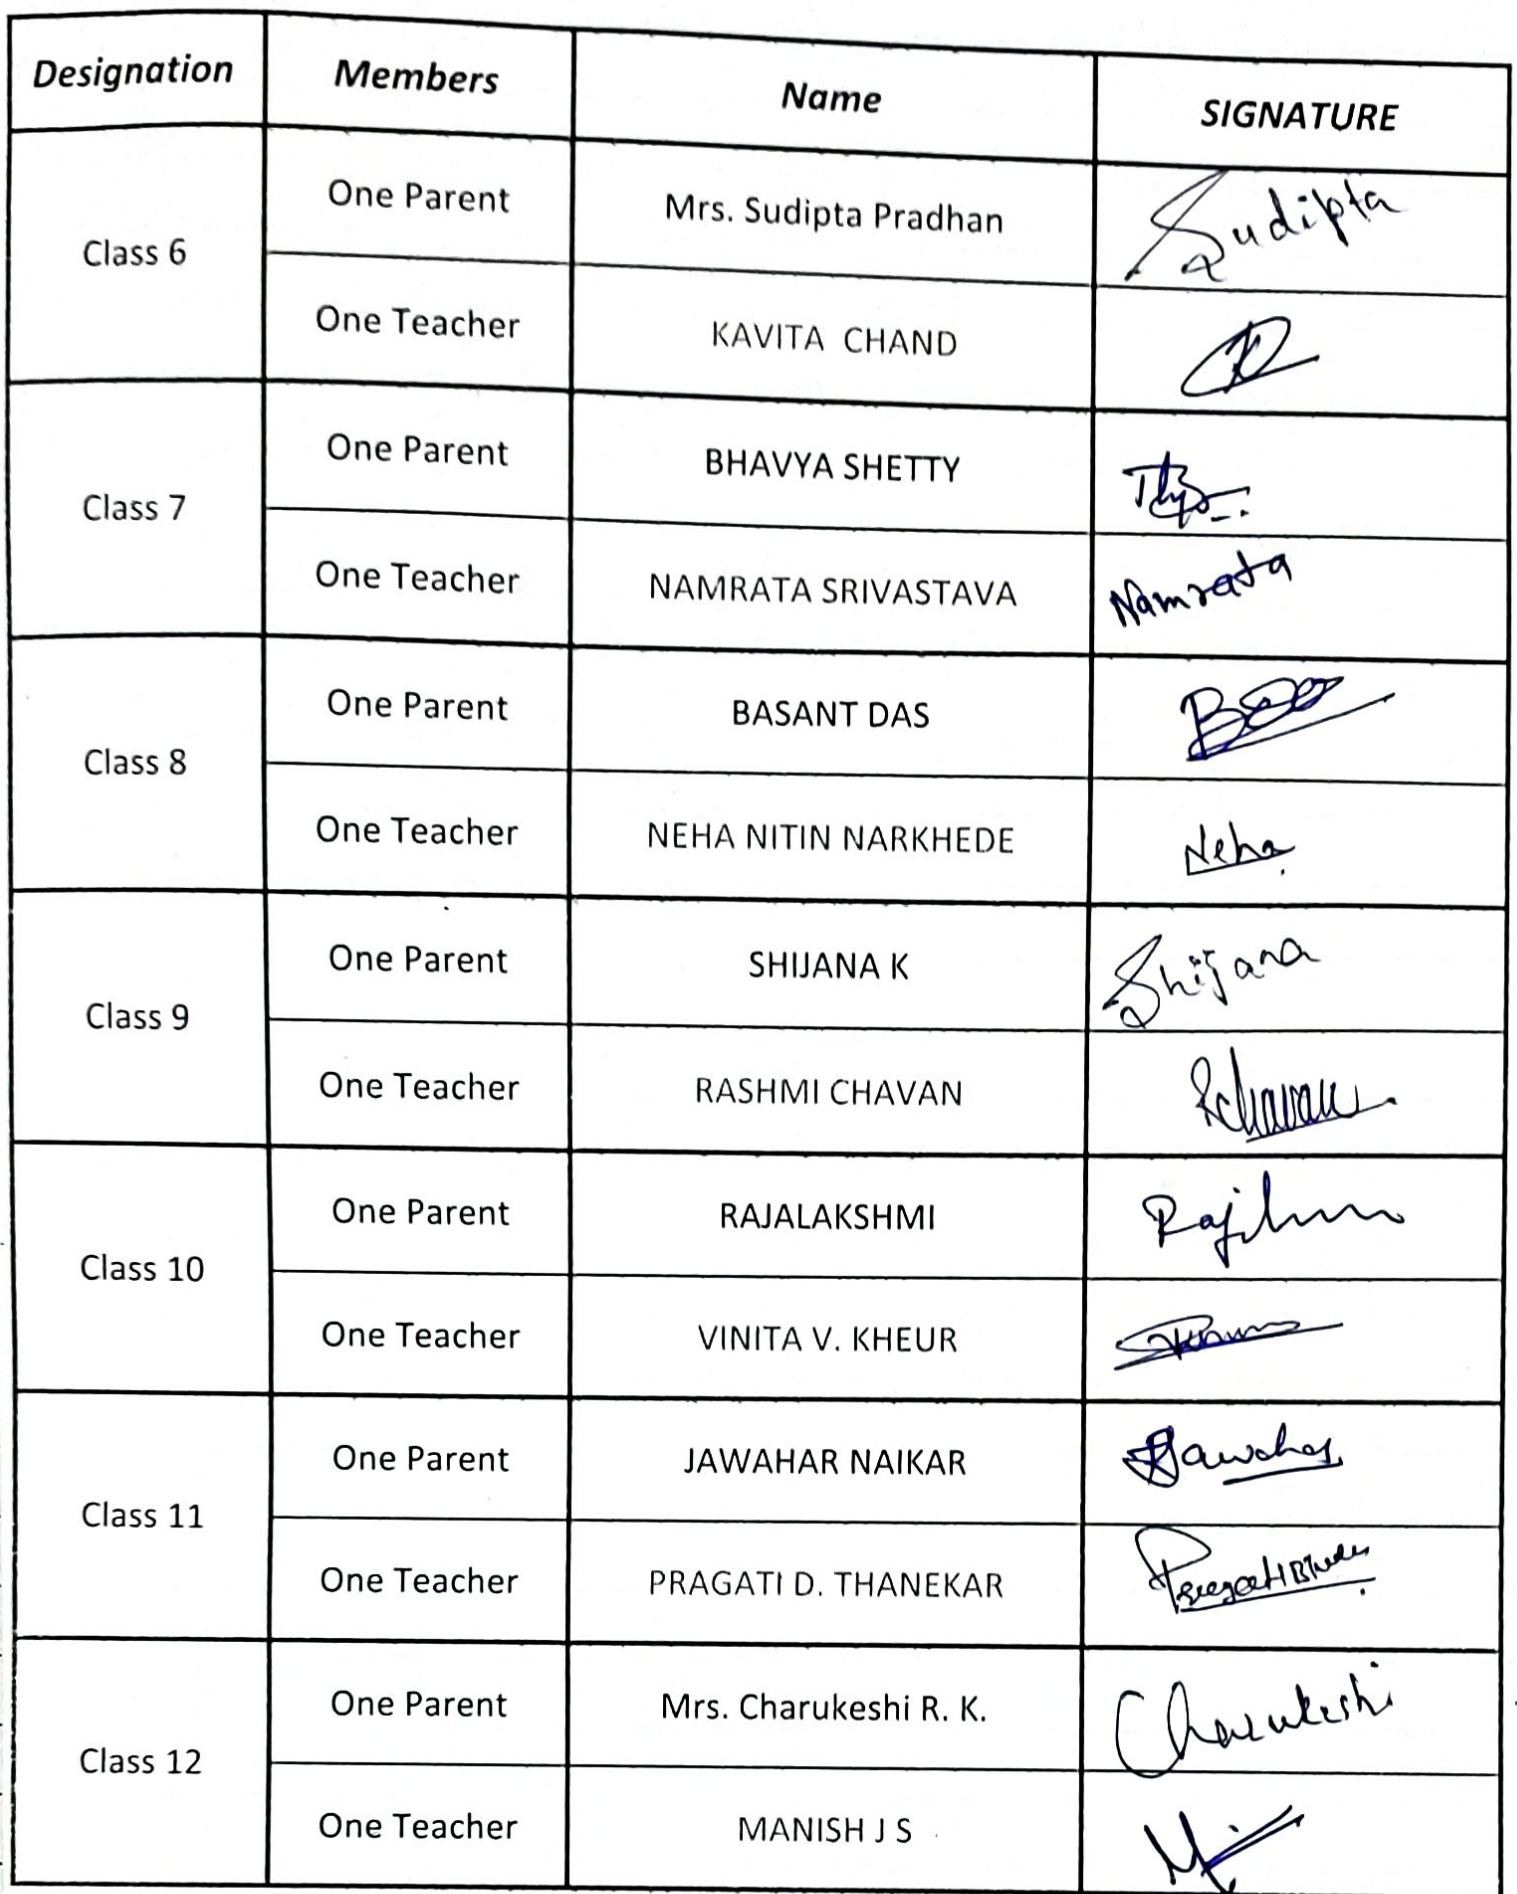 Designation Members Name SIGNATURE
Class 6
One Parent Mrs. Sudipta Pradhan Sudipta
One Teacher KAVITA CHAND
Class 7
One Parent BHAVYA SHETTY
One Teacher NAMRATA SRIVASTAVA Namrata
Class 8
One Parent BASANT DAS
One Teacher NEHA NITIN NARKHEDE Neha
Class 9
One Parent SHIJANA K Shijana
One Teacher RASHMI CHAVAN RChavan
Class 10
One Parent RAJALAKSHMI
One Teacher VINITA V. KHEUR
Class 11
One Parent JAWAHAR NAIKAR Jawahar
One Teacher PRAGATI D. THANEKAR
Class 12
One Parent Mrs. Charukeshi R. K. Charukeshi
One Teacher MANISH J S